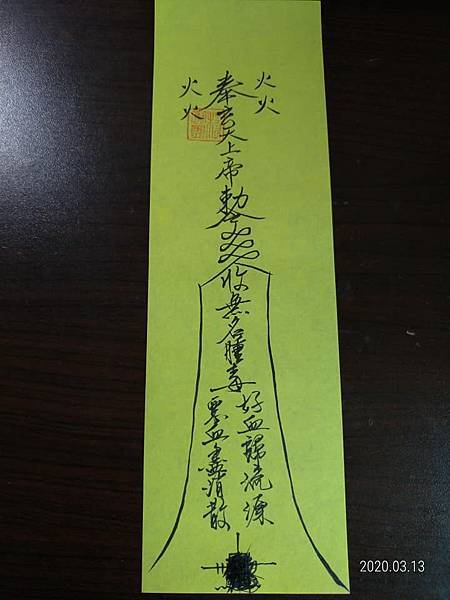 火火
奉玄天上帝勅令
收無名腫毒
好血歸流源
惡血盡消散
火火
2020.03.13